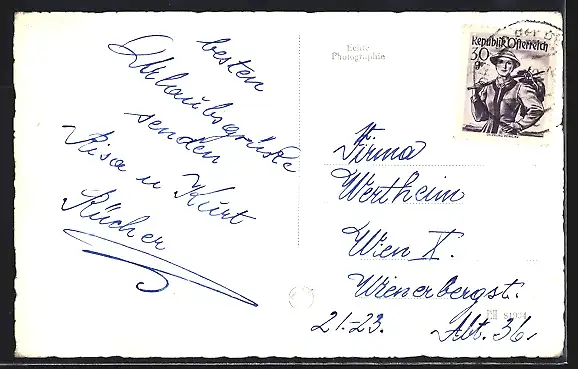 besten
Urlaubsgrüsse
senden
Risa u Kurt
Rücher
Echte
Photographie
Republik Österreich
30
g
Firma
Wertheim
Wien X.
Wienerbergst.
21-23.
Abt. 36.